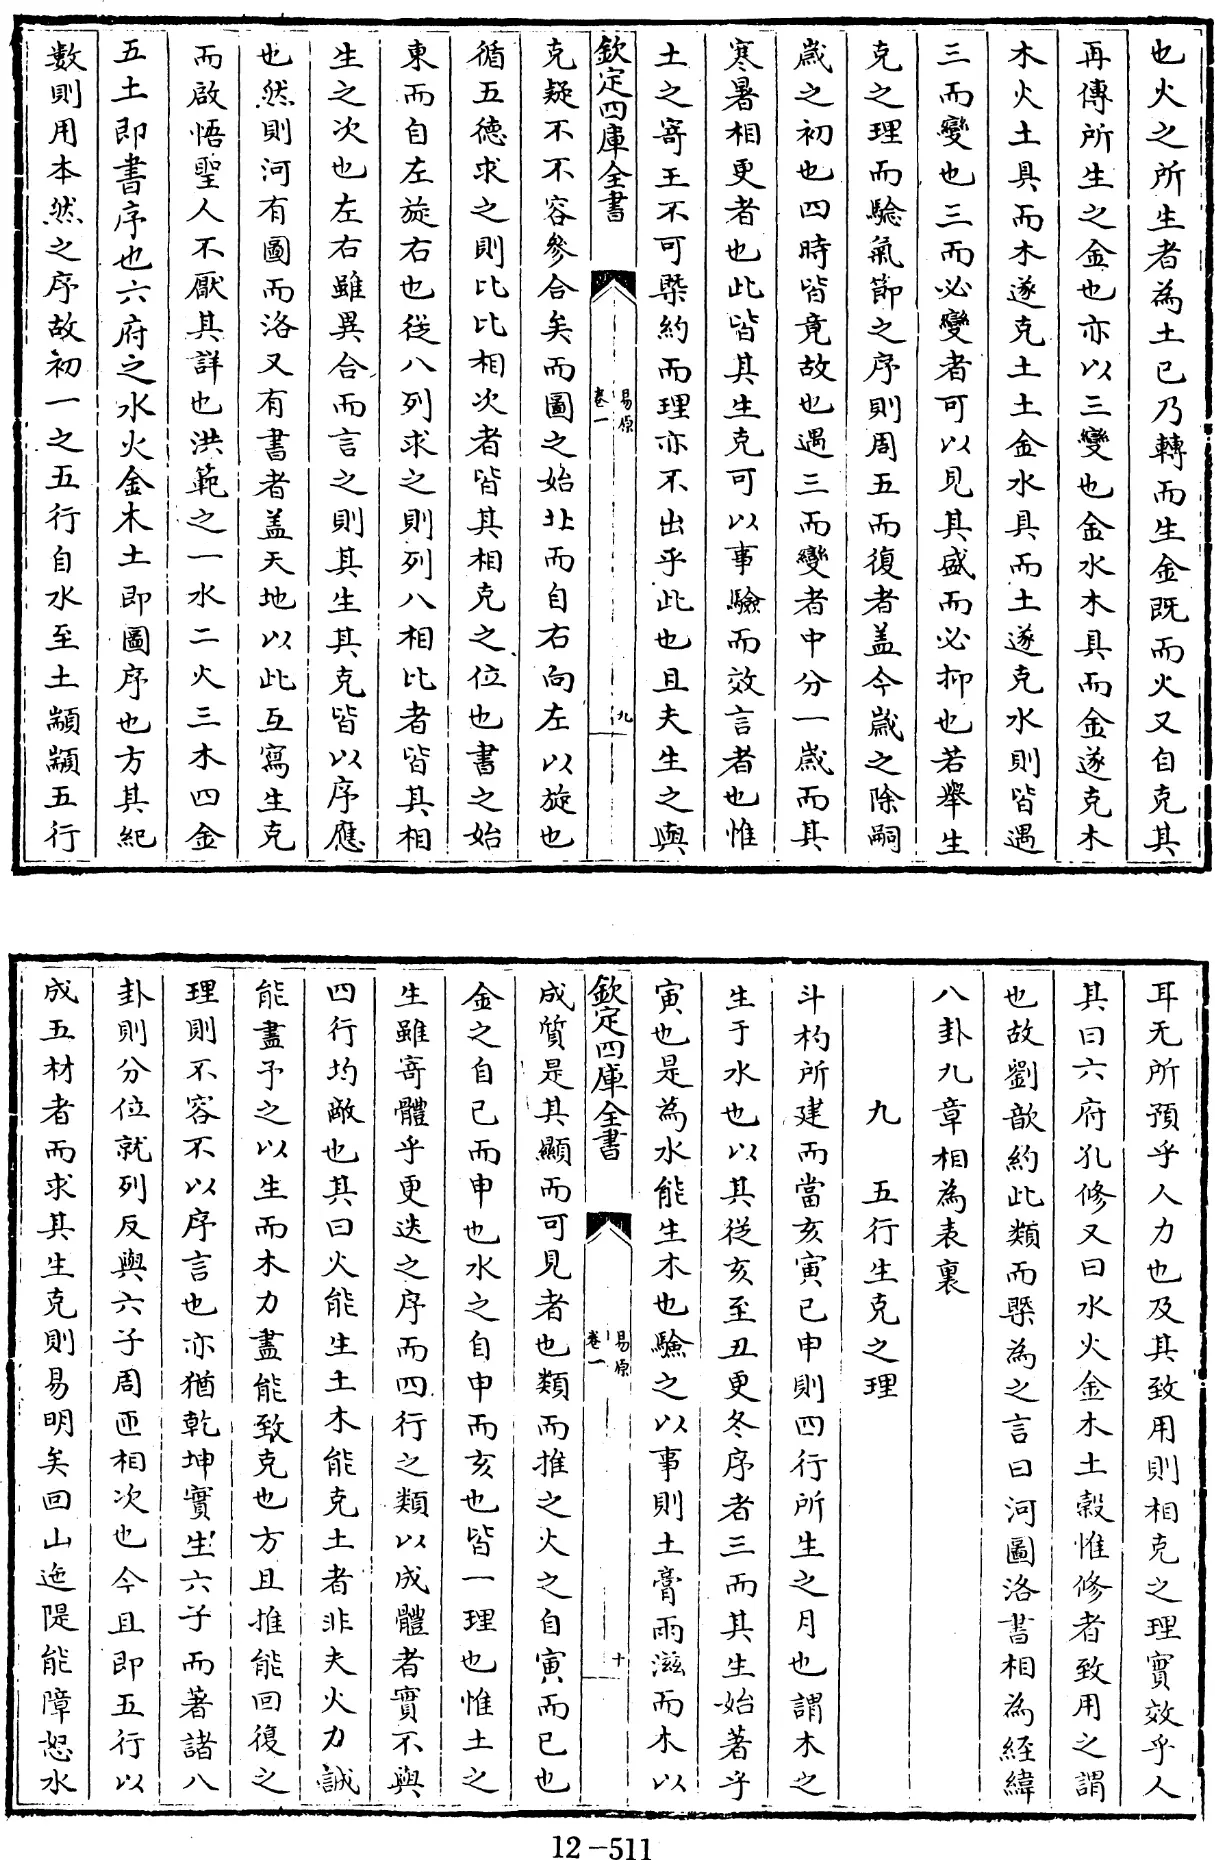 也火之所生者為土已乃轉而生金既而火又自克其
再傳所生之金也亦以三變也金水木具而金遂克木
木火土具而木遂克土土金水具而土遂克水則皆遇
三而變也三而必變者可以見其盛而必抑也若舉生
克之理而驗氣節之序則周五而復者盖今嵗之除嗣
嵗之初也四時皆竟故也遇三而變者中分一嵗而其
寒暑相更者也此皆其生克可以事驗而效言者也惟
土之寄王不可槩約而理亦不出乎此也且夫生之與
欽定四庫全書
易原
卷一
九
克疑不不容參合矣而圖之始北而自右向左以旋也
循五德求之則比比相次者皆其相克之位也書之始
東而自左旋右也從八列求之則列八相比者皆其相
生之次也左右雖異合而言之則其生其克皆以序應
也然則河有圖而洛又有書者盖天地以此互寫生克
而啟悟聖人不厭其詳也洪範之一水二火三木四金
五土即書序也六府之水火金木土即圖序也方其紀
數則用本然之序故初一之五行自水至土顓顓五行
耳无所預乎人力也及其致用則相克之理實效乎人
其曰六府孔修又曰水火金木土糓惟修者致用之謂
也故劉歆約此類而槩為之言曰河圖洛書相為經緯
八卦九章相為表裏
九　五行生克之理
斗杓所建而當亥寅已申則四行所生之月也謂木之
生于水也以其從亥至丑更冬序者三而其生始著乎
寅也是為水能生木也驗之以事則土膏雨滋而木以
欽定四庫全書
易原
卷一
十
成質是其顯而可見者也類而推之火之自寅而已也
金之自已而申也水之自申而亥也皆一理也惟土之
生雖寄體乎更迭之序而四行之類以成體者實不與
四行均敵也其曰火能生土木能克土者非夫火力誠
能盡予之以生而木力盡能致克也方且推能回復之
理則不容不以序言也亦猶乾坤實生六子而著諸八
卦則分位就列反與六子周匝相次也今且即五行以
成五材者而求其生克則易明矣回山迤隄能障怒水
12-511